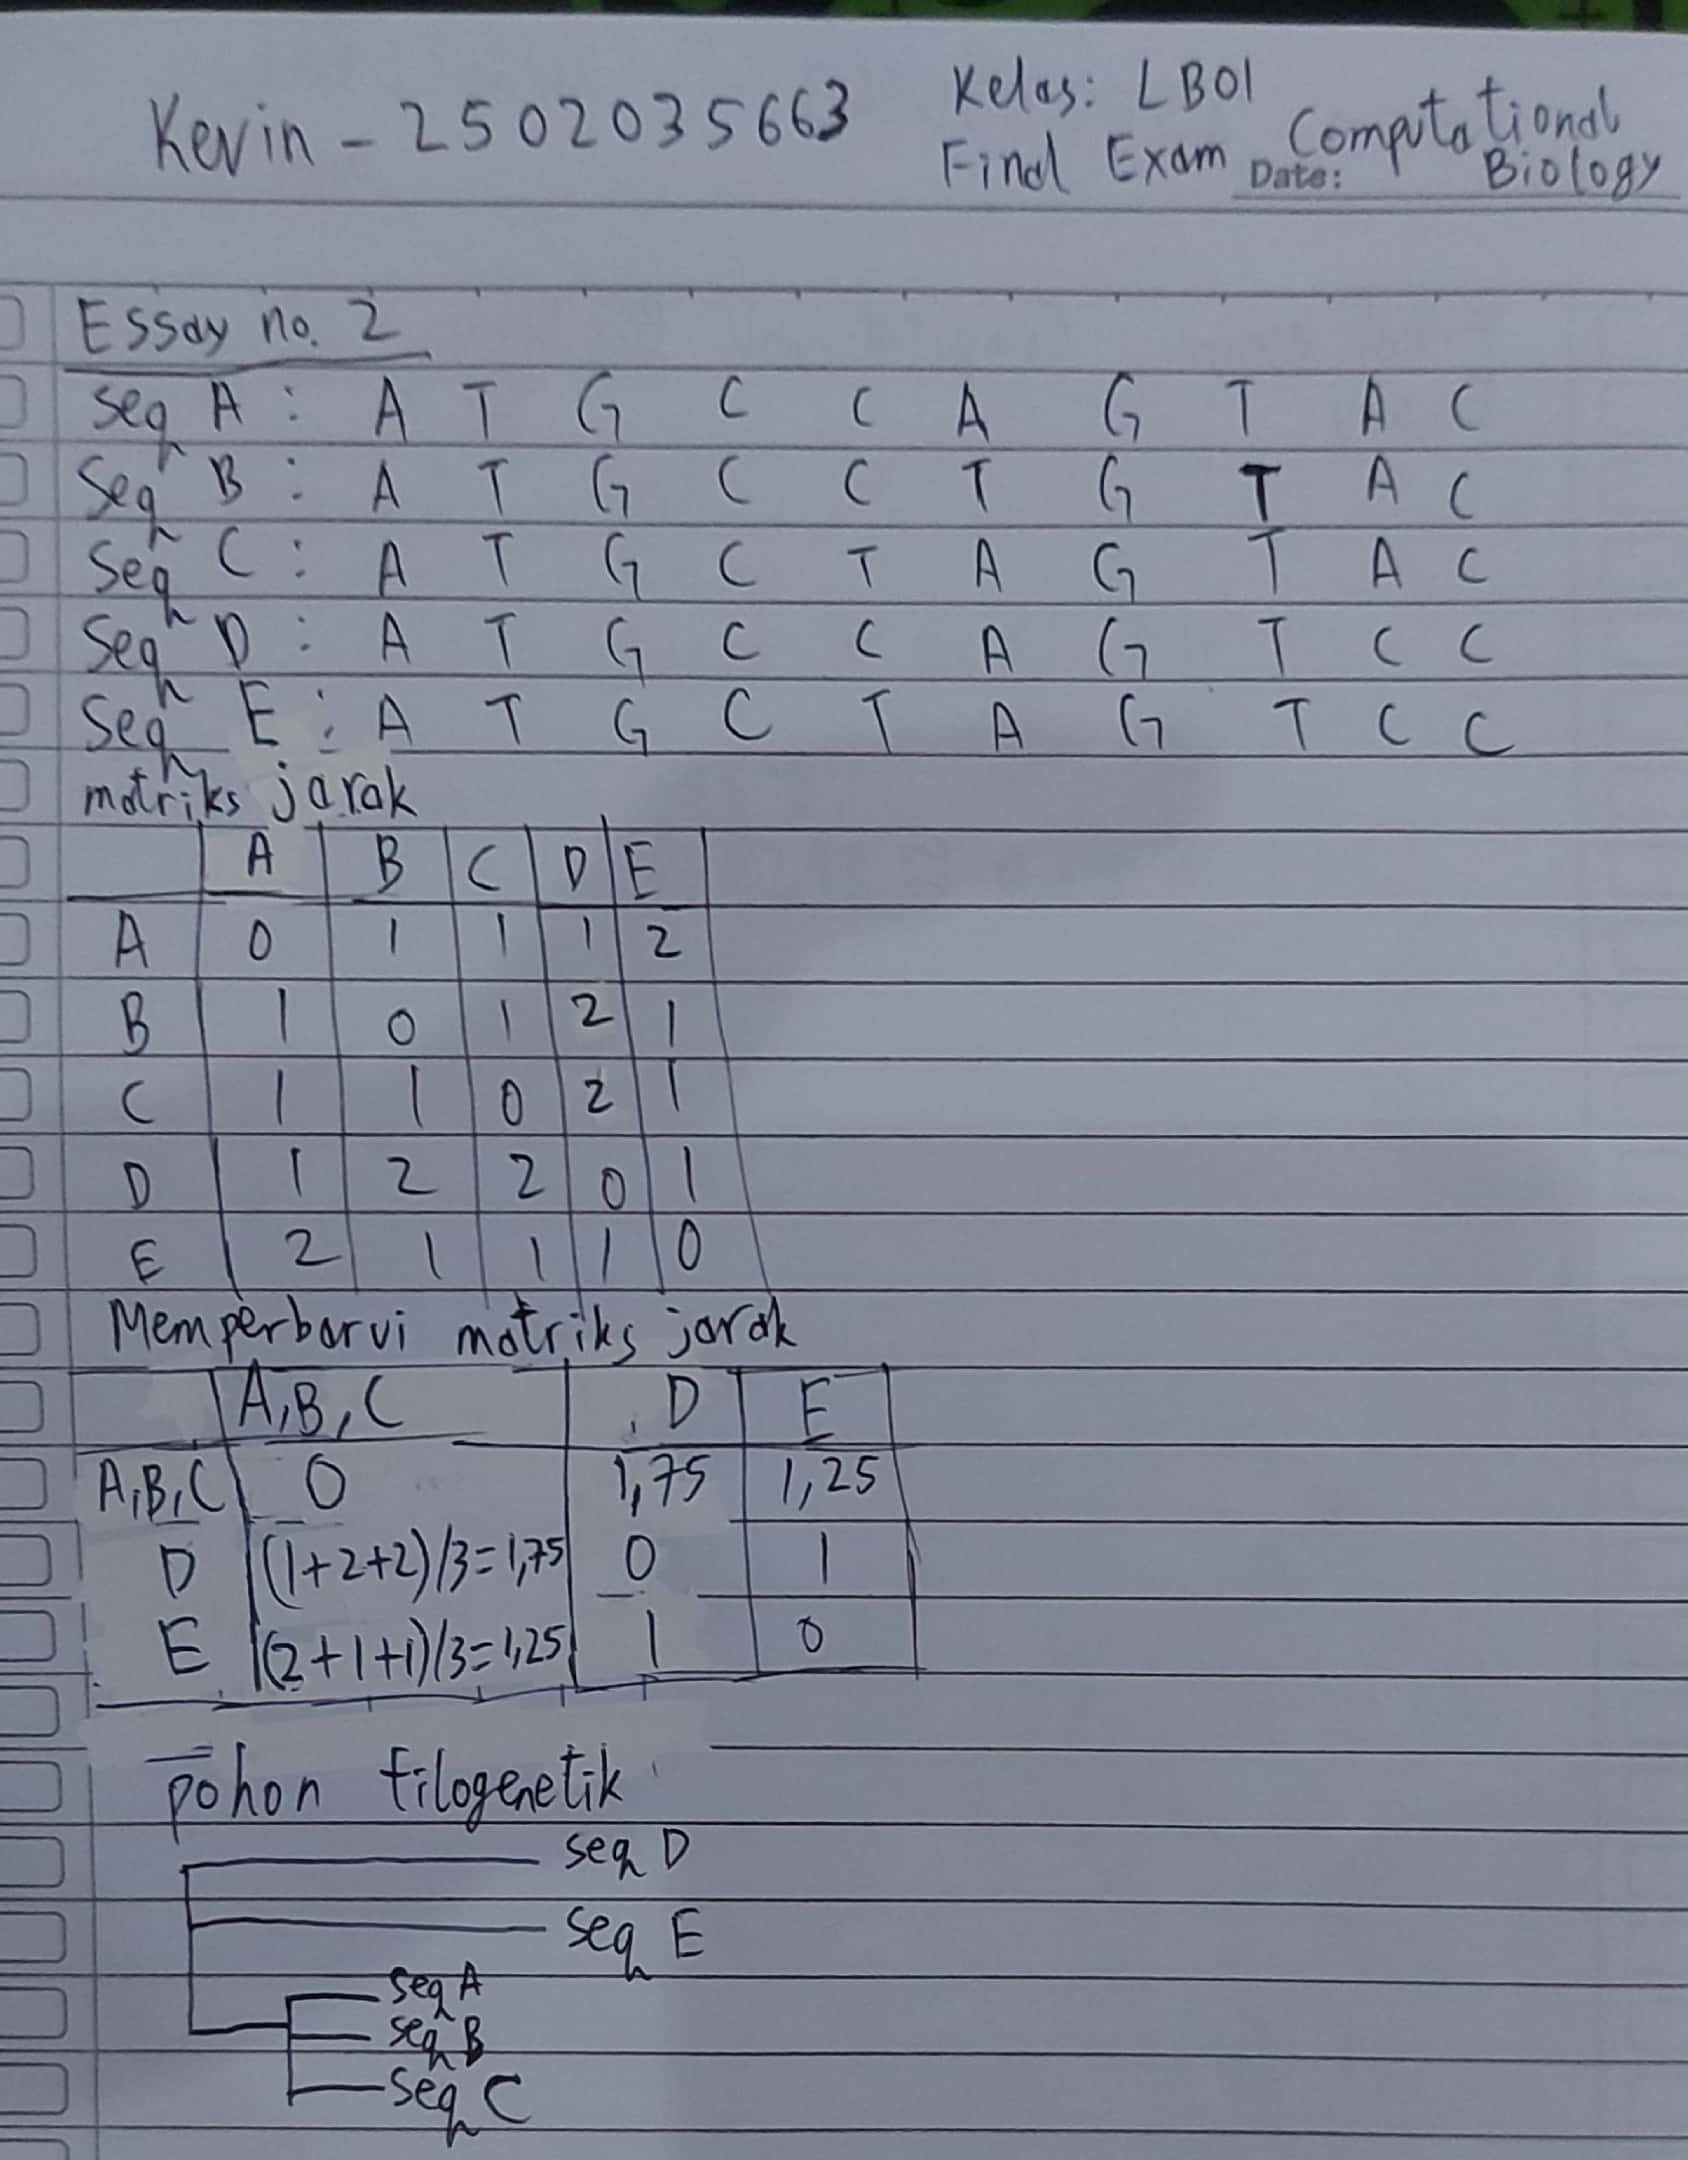 Kevin - 2502035663
Kelas: LB01
Final Exam Computational Biology
Date:
Essay no. 2
seq A : A T G C C A G T A C
Seq B : A T G C C T G T A C
Seq C : A T G C T A G T A C
Seq D : A T G C C A G T C C
Seq E : A T G C T A G T C C
matriks jarak
A B C D E
A 0 1 1 1 2
B 1 0 1 2 1
C 1 1 0 2 1
D 1 2 2 0 1
E 2 1 1 1 0
Memperbarui matriks jarak
A,B,C D E
A,B,C 0 1,75 1,25
D (1+2+2)/3=1,75 0 1
E (2+1+1)/3=1,25 1 0
pohon filogenetik
seq D
seq E
seq A
seq B
seq C